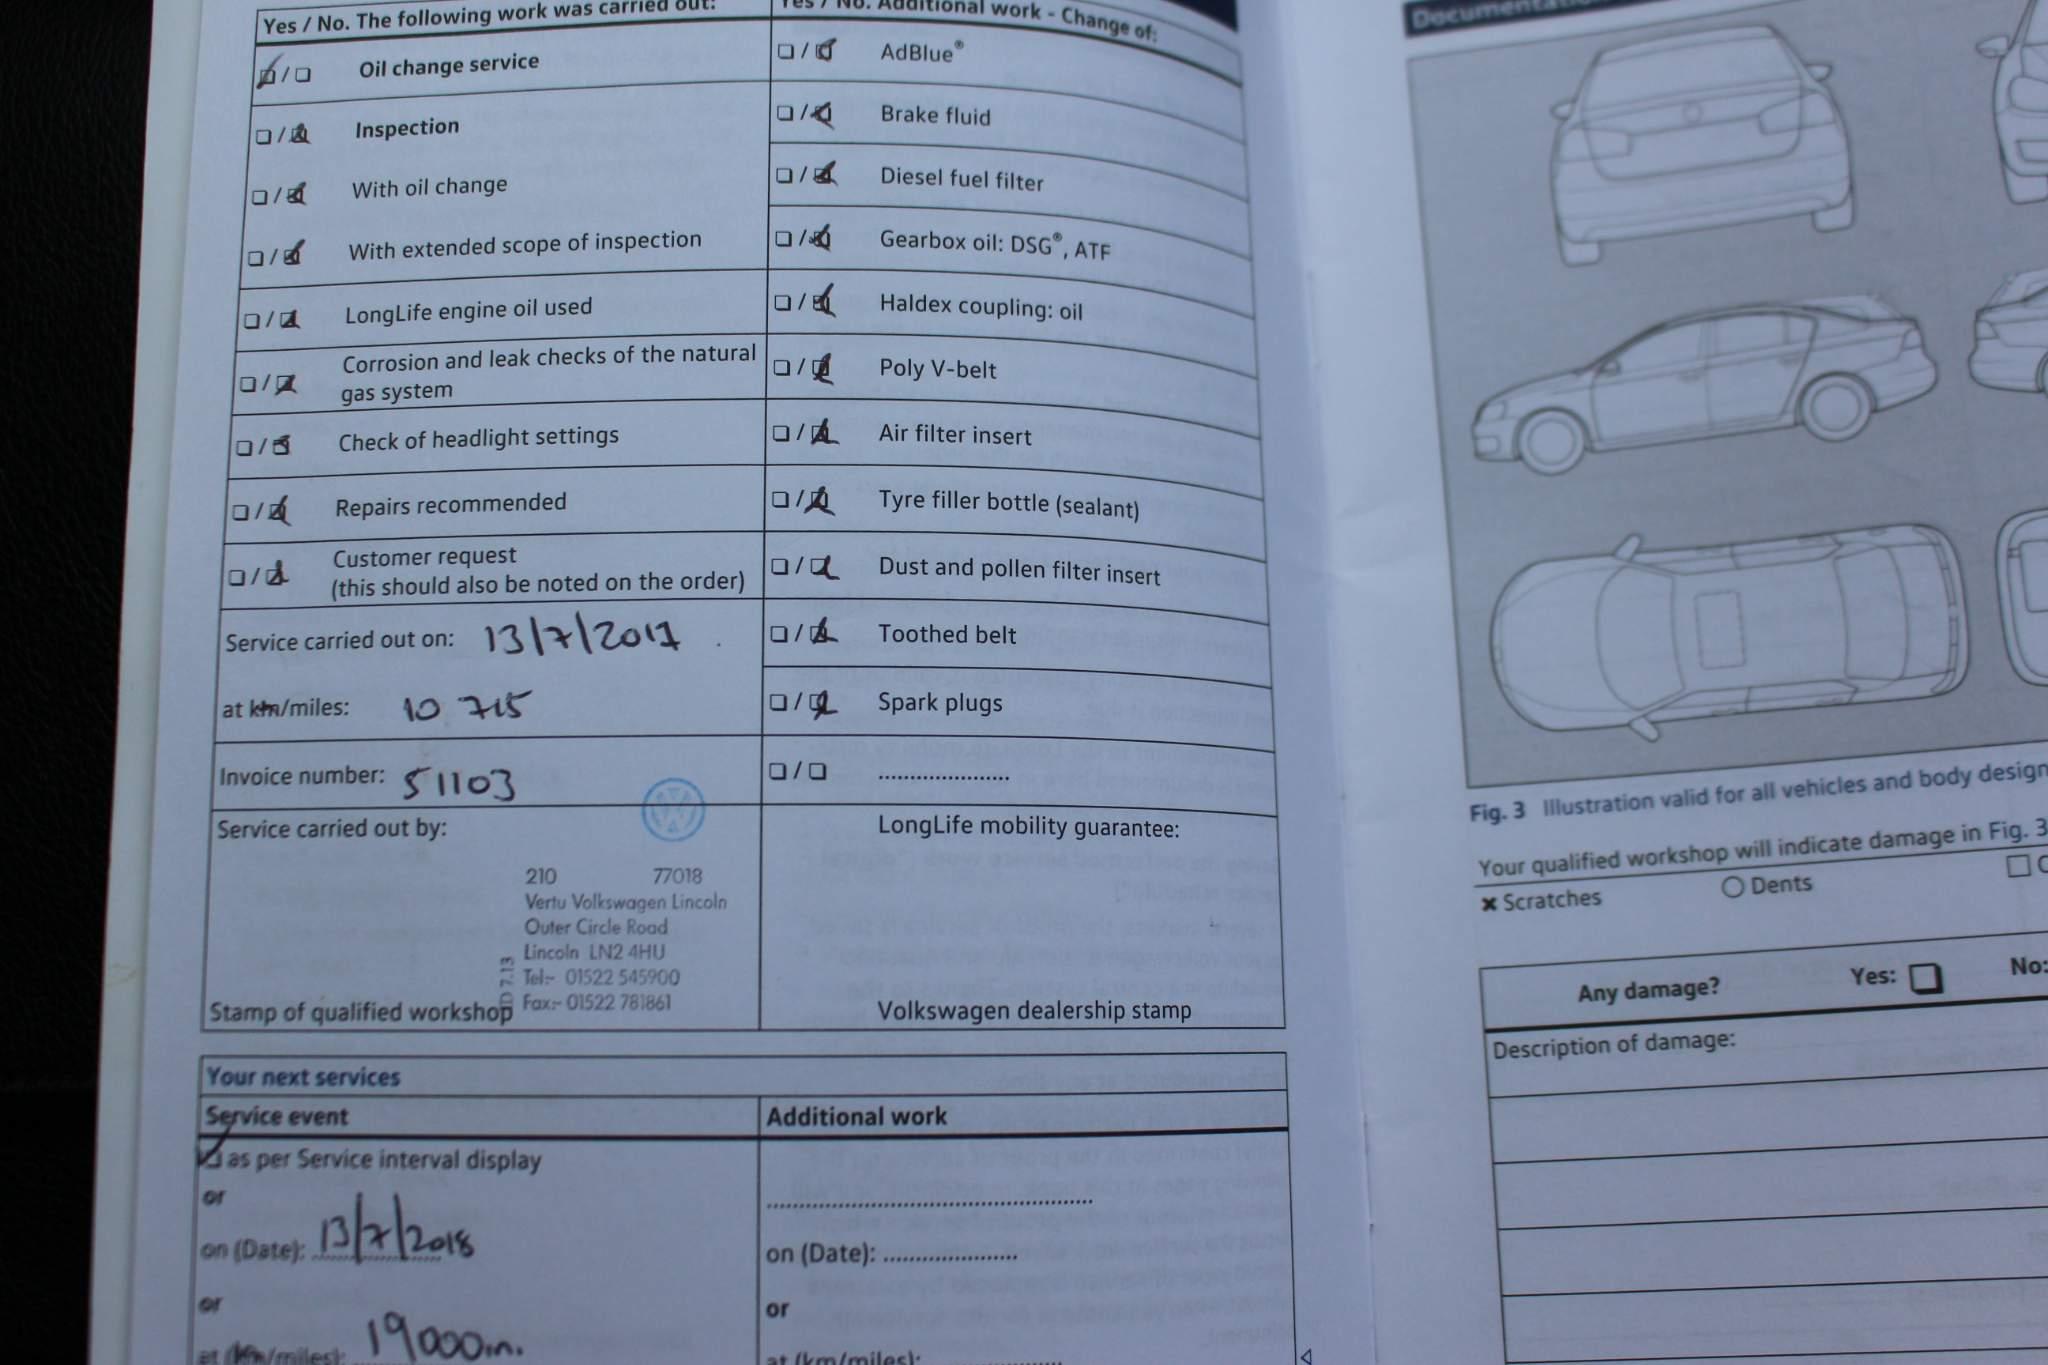 Yes / No. The following work was carried out:
Oil change service
Inspection
With oil change
With extended scope of inspection
LongLife engine oil used
Corrosion and leak checks of the natural
gas system
Check of headlight settings
Repairs recommended
Customer request
(this should also be noted on the order)
Service carried out on: 13/7/2017
at km/miles: 10 715
Invoice number: 51103
Service carried out by:
210 77018
Vertu Volkswagen Lincoln
Outer Circle Road
Lincoln LN2 4HU
Tel:- 01522 545900
Fax:- 01522 781861
Stamp of qualified workshop
Yes / No. Additional work - Change of:
AdBlue®
Brake fluid
Diesel fuel filter
Gearbox oil: DSG®, ATF
Haldex coupling: oil
Poly V-belt
Air filter insert
Tyre filler bottle (sealant)
Dust and pollen filter insert
Toothed belt
Spark plugs
LongLife mobility guarantee:
Volkswagen dealership stamp
Your next services
Service event
as per Service interval display
or
on (Date): 13/7/2018
or
at (km/miles): 19000m.
Additional work
on (Date):
or
at (km/miles):
Fig. 3 Illustration valid for all vehicles and body design
Your qualified workshop will indicate damage in Fig. 3
Scratches
Dents
Any damage? Yes: No:
Description of damage: